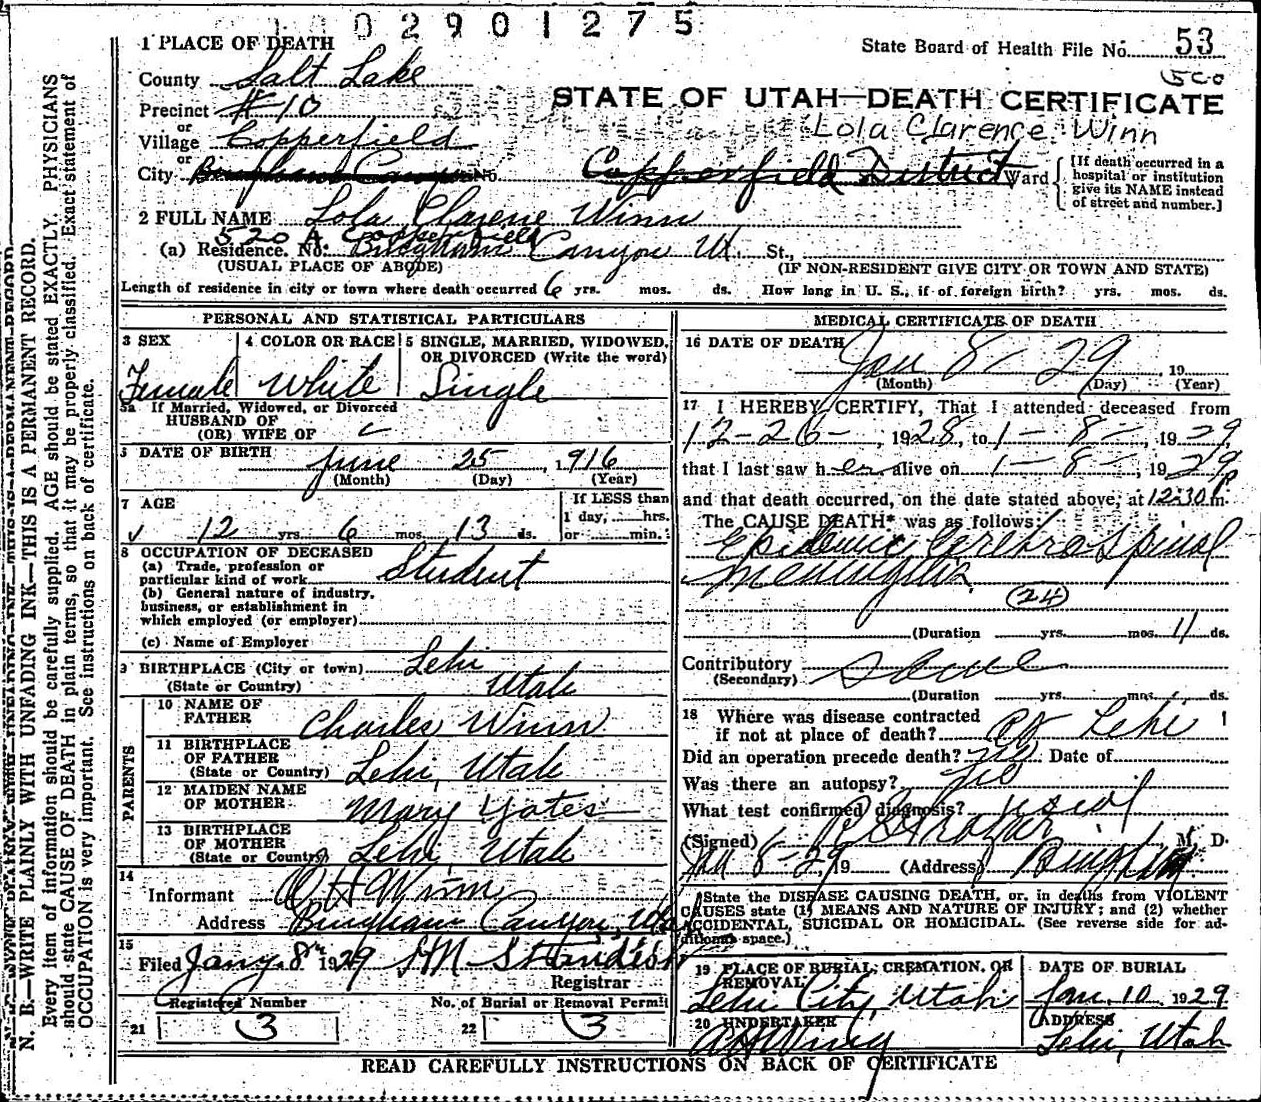 0 0 2 9 0 1 2 7 5
1 PLACE OF DEATH
State Board of Health File No. 53
500
County Salt Lake
STATE OF UTAH—DEATH CERTIFICATE
Precinct #10
Lola Clarence Winn
or
Village Copperfield
or
City Bingham Canyon No. Copperfield District Ward
[If death occurred in a hospital or institution give its NAME instead of street and number.]
2 FULL NAME Lola Clarene Winn
520 A Copperfield
(a) Residence. No. Bingham Canyon Ut. St.,
(USUAL PLACE OF ABODE) (IF NON-RESIDENT GIVE CITY OR TOWN AND STATE)
Length of residence in city or town where death occurred 6 yrs. mos. ds. How long in U. S., if of foreign birth? yrs. mos. ds.
PERSONAL AND STATISTICAL PARTICULARS
3 SEX 4 COLOR OR RACE 5 SINGLE, MARRIED, WIDOWED, OR DIVORCED (Write the word)
Female White Single
5a If Married, Widowed, or Divorced
HUSBAND OF
(OR) WIFE OF
6 DATE OF BIRTH June 25, 1916
(Month) (Day) (Year)
7 AGE If LESS than
1 day, hrs.
12 yrs. 6 mos. 13 ds. or min.
8 OCCUPATION OF DECEASED
(a) Trade, profession or
particular kind of work Student
(b) General nature of industry,
business, or establishment in
which employed (or employer)
(c) Name of Employer
9 BIRTHPLACE (City or town) Lehi
(State or Country) Utah
PARENTS
10 NAME OF
FATHER Charles Winn
11 BIRTHPLACE
OF FATHER
(State or Country) Lehi, Utah
12 MAIDEN NAME
OF MOTHER Mary Yates
13 BIRTHPLACE
OF MOTHER
(State or Country) Lehi, Utah
14
Informant Winn
Address Bingham Canyon, Ut.
15
Filed Jany. 8th 1929 Standish
Registrar
Registered Number No. of Burial or Removal Permit
21 3 22 3
MEDICAL CERTIFICATE OF DEATH
16 DATE OF DEATH
Jan 8—29, 19
(Month) (Day) (Year)
17 I HEREBY CERTIFY, That I attended deceased from
12-26-, 1928, to 1-8-, 1929,
that I last saw her alive on 1-8-, 1929,
and that death occurred, on the date stated above, at 12:30 P m.
The CAUSE DEATH* was as follows:
Epidemic Cerebro Spinal
Meningitis
(24)
(Duration yrs. mos. 11 ds.
Contributory
(Secondary)
(Duration yrs. mos. ds.
18 Where was disease contracted
if not at place of death? Lehi
Did an operation precede death? no Date of
Was there an autopsy? no
What test confirmed diagnosis? usual
(Signed) M. D.
Jan 8-29, 19 (Address) Bingham
*State the DISEASE CAUSING DEATH, or, in deaths from VIOLENT
CAUSES state (1) MEANS AND NATURE OF INJURY; and (2) whether
ACCIDENTAL, SUICIDAL OR HOMICIDAL. (See reverse side for ad-
ditional space.)
19 PLACE OF BURIAL, CREMATION, OR
REMOVAL
Lehi City, Utah
DATE OF BURIAL
Jan. 10 1929
20 UNDERTAKER
ADDRESS
Lehi, Utah
READ CAREFULLY INSTRUCTIONS ON BACK OF CERTIFICATE
N. B.—WRITE PLAINLY WITH UNFADING INK—THIS IS A PERMANENT RECORD.
Every item of information should be carefully supplied. AGE should be stated EXACTLY. PHYSICIANS
should state CAUSE OF DEATH in plain terms, so that it may be properly classified. Exact statement of
OCCUPATION is very important. See instructions on back of certificate.